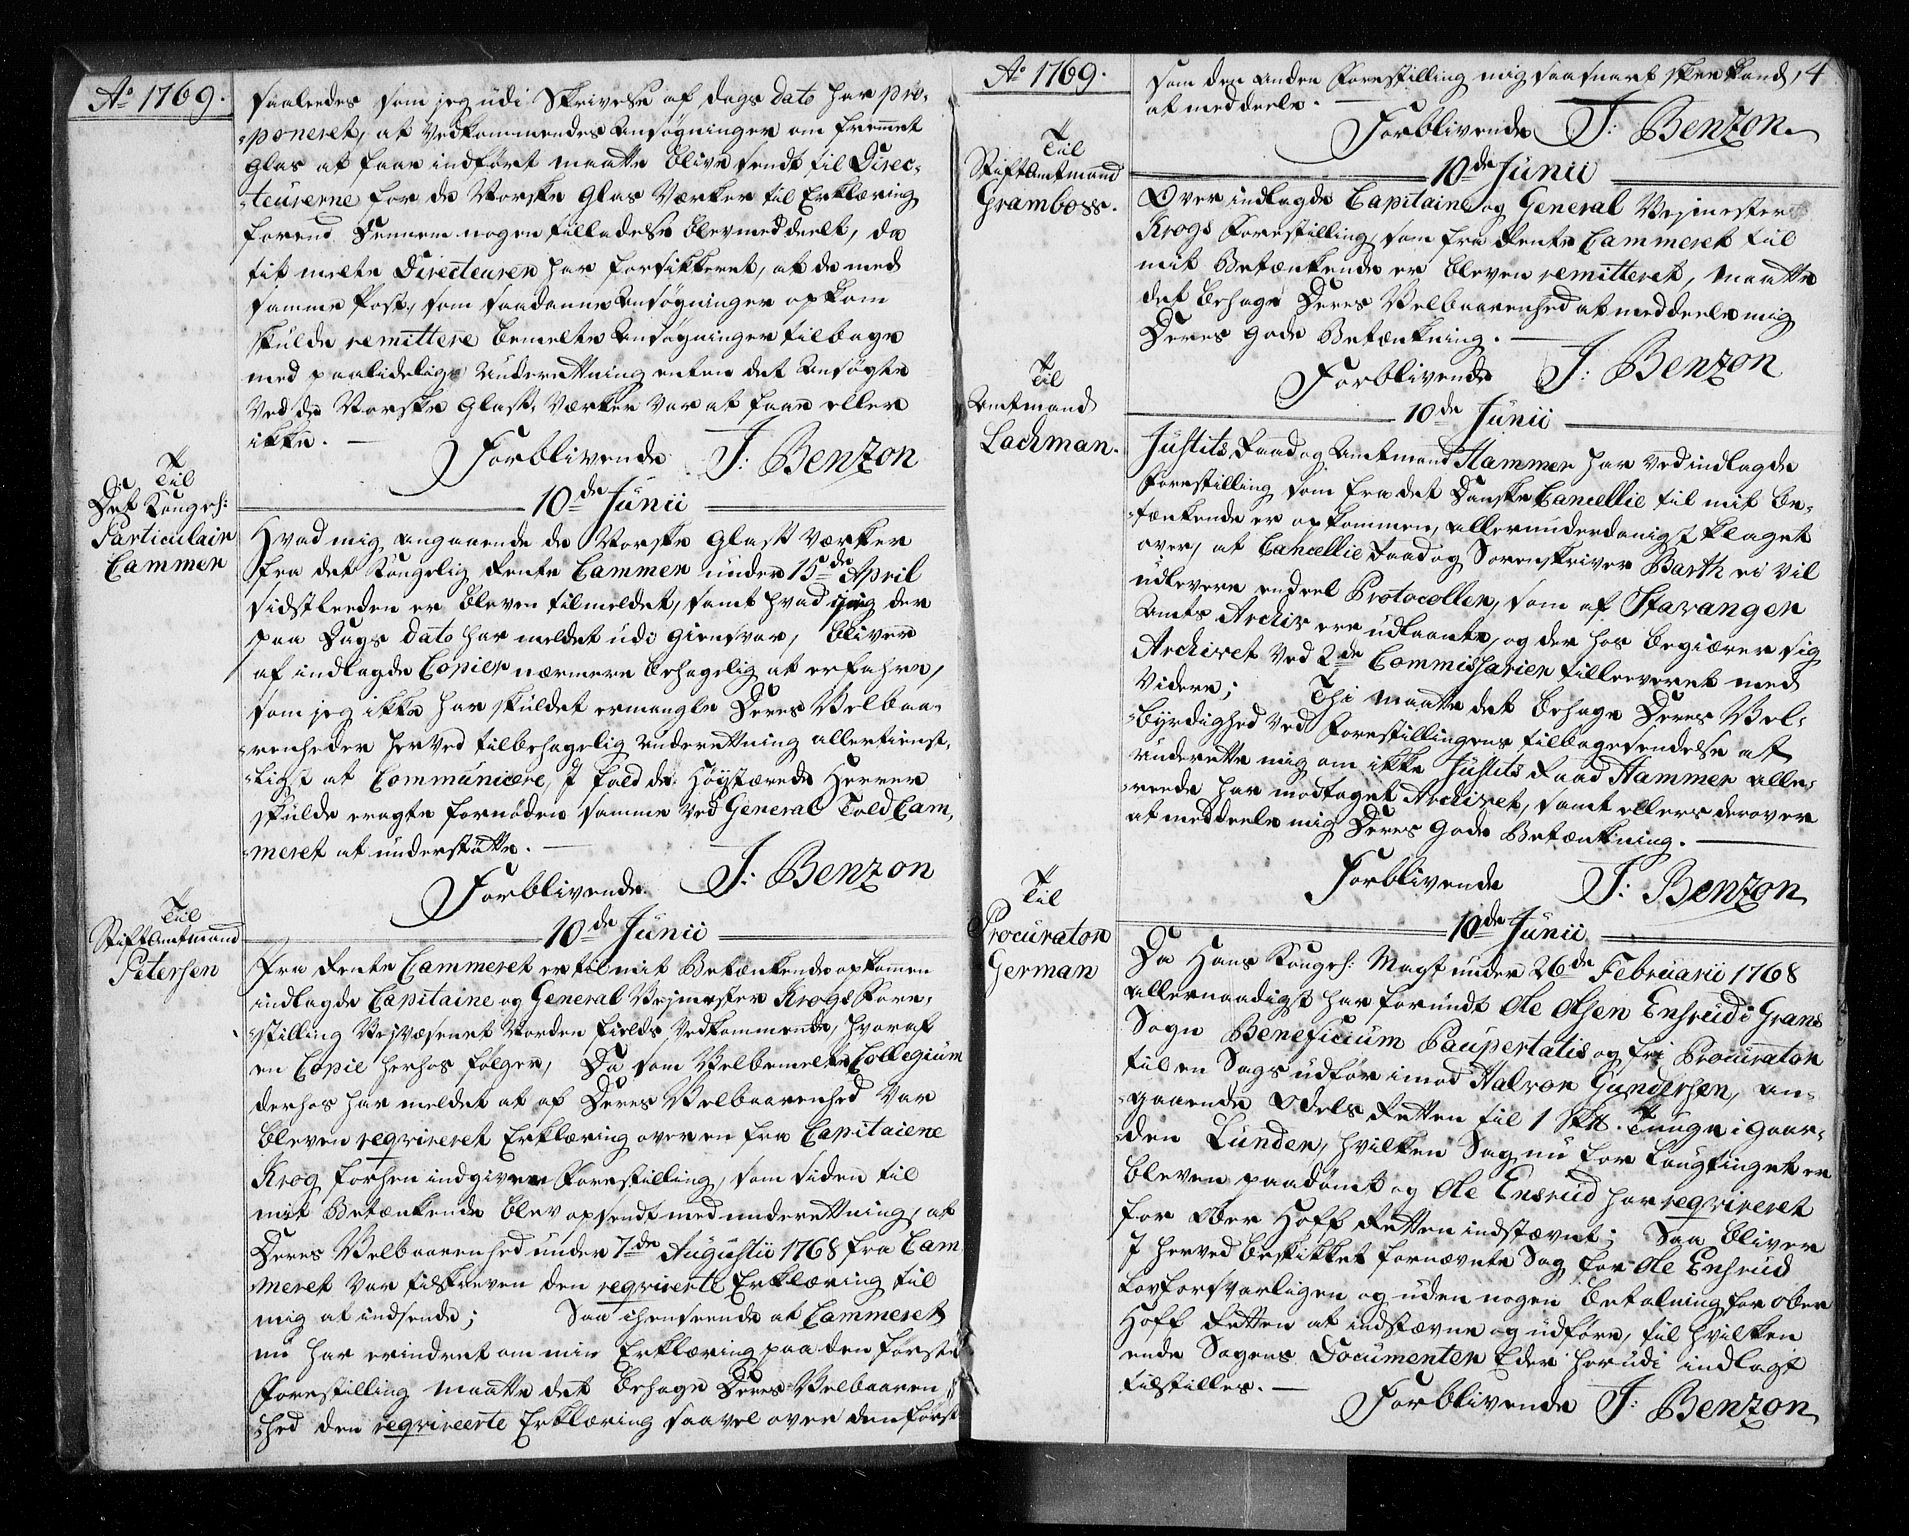 Ao 1769.
saaledes som jeg udi Skrivelse af dags dato har pro-
poneret, at Vedkommendes Ansøgninger om fremmet
Glas at faae indført maatte blive sendt til Direc-
teurerne for de Norske Glas Værker til Erklæring
forend Dennem nogen tilladelse blev meddeelt, da
tit melte Directeuren har forsikkeret, at de med
samme Post, som saadanne Ansøgninger opkom
skulde remittere bemelte Ansøgninger tilbage
med paalidelig Underettning enten det Ansøgte
Ved de Norske Glas Værker var at faae eller
ikke. Forblivende J: Benzon
Til
Det Kongel:
Particulair
Cammer
10de Junii
Hvad mig angaaende de Norske Glass Værker
fra det Kongelig Rente Cammer under 15de April
sidstleeden er bleven tilmeldet, samt hvad jeg der
paa Dags dato har meldet udi giensvar, bliver
af indlagde Copier nærmere behagelig at erfahre,
som jeg ikke har skuldet ermangle Deres Velbaa-
renheder herved til behagelig Underettning allertienst-
ligst at Communicere, J fald de Høystærede Herrer
skulde eragte fornøden samme Ved General Told Cam-
meret at understøtte.
Forblivende J: Benzon
Til
StiftAmtmand
Petersen
10de Junii
Fra Rente Cammeret er til mit Betænkende opkommen
indlagde Capitaine og General Vejmester Krogs Fore-
stilling Vejvæsenet Norden fields Vedkommende, hvoraf
en Copie herhos følger, Da som Velbemelte Collegium
derhos har meldet at af Deres Velbaarenhed var
bleven reqvireret Erklæring over en fra Capitaiene
Krog forhen indgiven Forestilling, som siden til
mit Betænkende blev opsendt med underettning, at
Deres Velbaarenhed under 7de Augustii 1768 fra Cam-
meret var tilskreven den reqvirerte Erklæring til
mig at indsende; Saa i henseende at Cammeret
nu har erindret om min Erklæring paa den første
Forestilling maatte det behage Deres Velbaaren-
hed den reqvireerte Erklæring saavel over den første
Ao 1769.
som den anden Forestilling mig saasnart skee kand, 4
at meddeele.
Forblivende J: Benzon
Til
StiftAmtmand
Gramboss.
10de Junii
Over indlagde Capitaine og General Vejmester
Krogs Forestilling, som fra Rente Cammeret til
mit Betænkende er bleven remitteret, maatte
det behage Deres Velbaarenhed at meddeele mig
Deres Gode Betænkning.
Forblivende J: Benzon
Til
Amtmand
Lachman.
10de Junii
Justits Raad og Amtmand Hammer har ved indlagde
Forestilling som fra det Danske Cancellie til mit be-
tænkende er opkommen, allerunderdanigst klaget
over, at Cancellie Raad og Sorenskriver Barth ei vil
udlevere endeel Protocoller, som af Stavanger
Amts Archiv ere udlaante, og der hos begiærer sig
Archivet Ved 2de Commissarier tilleeveret med
Videre; Thi maatte det behage Deres Vel-
byrdighed ved Forestillingens tilbagesendelse at
underette mig om ikke Justits Raad Hammer alle-
reede har modtaget Archivet, samt ellers derover
at meddeele mig Deres Gode Betænkning.
Forblivende J: Benzon
Til
Procurator
German
10de Junii
Da Hans Kongel: Mayst under 26de Februarii 1768
allernaadigst har forundt Ole Olsen Ensrud i Grans
Sogn Beneficium Paupertatis og fri Procurator
til en Sags udfør imod Halvor Gundersen, an-
gaaende Odels Retten til 1 Skll. Tunge i Gaar-
den Lunder, hvilken Sag nu for Laugtinget er
bleven paadømt og Ole Ensrud har reqvireret
for Ober Hoff Retten indstævnt; Saa bliver
J herved beskikket fornævnte Sag for Ole Ensrud
lovforsvarligen og uden nogen betalning for Ober
Hoff Retten at indstævne og udføre, til hvilken
ende Sagens Documenter Eder herudi indlagt
tilstilles.
Forblivende J: Benzon